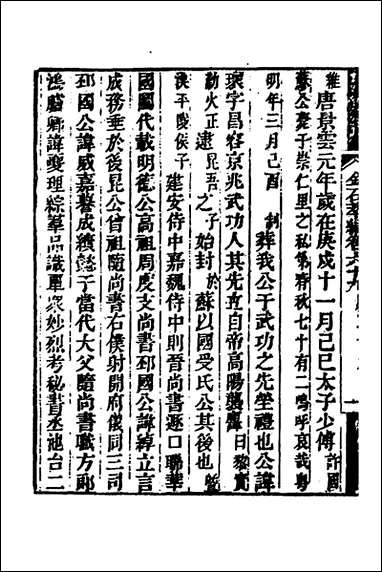 金石萃編卷六十九
維唐景雲元年歲在庚戍十一月己巳太子少傅許國
蘇公薨于崇仁里之私第春秋七十有二嗚呼哀哉粤
明年三月己酉 制葬我公于武功之先塋禮也公諱
瓌字昌容京兆武功人其先自帝高陽襲曰黎實
火正逮昆吾之子始封於蘇以國受氏公其後也曁
漢平陵侯子 建安侍中嘉魏侍中則晉尚書逐口聯華
國圖代載明德公高祖周度支尚書邳國公諱綽立言
成務垂於後昆公曾祖隨尚書右僕射開府儀同三司
邳國公諱威嘉暮成績懿于當代大父隨尚書職方郎
鴻臚卿諱夔理綜羣品識單衆妙烈考秘書丞池台二